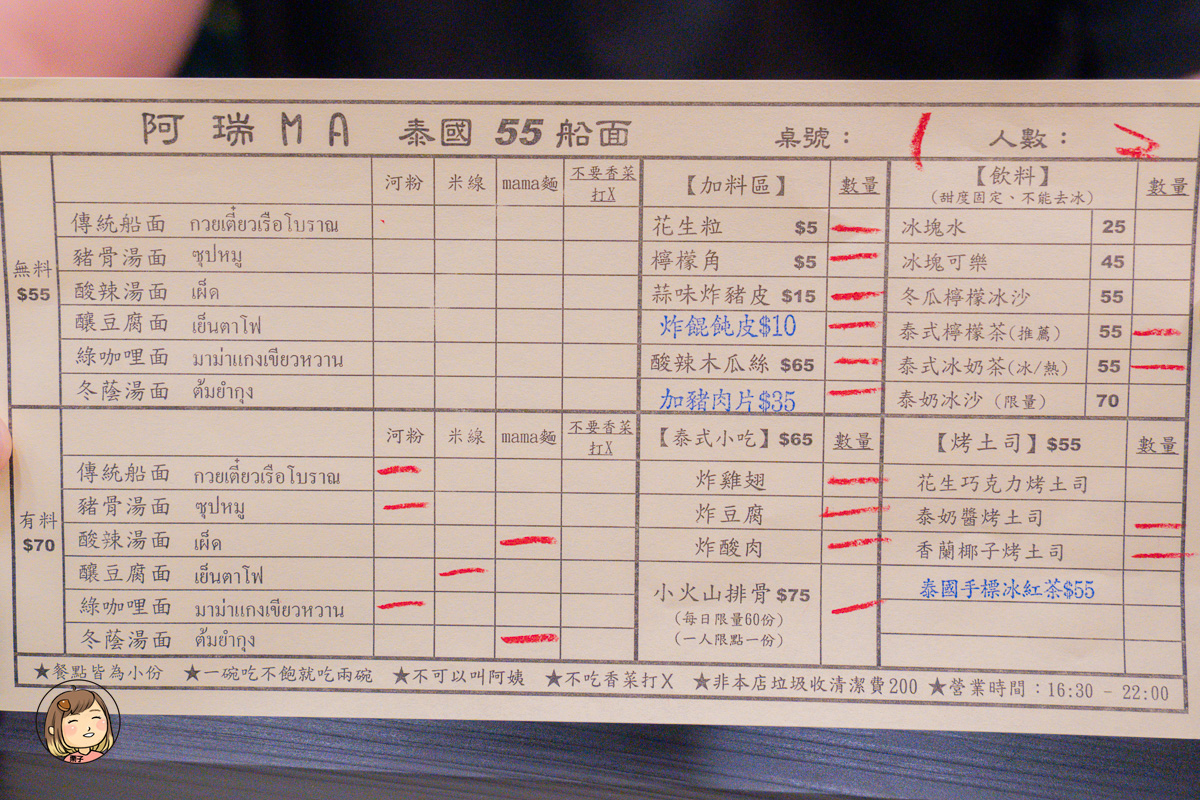 阿瑞MA 泰國55船面 桌號： 1 人數： 2
無料 $55
河粉 米線 mama麵 不要香菜打X
傳統船面 กวยเตี๋ยวเรือโบราณ
豬骨湯面 ซุปหมู
酸辣湯面 เผ็ด
釀豆腐面 เย็นตาโฟ
綠咖哩面 มาม่าแกงเขียวหวาน
冬蔭湯面 ต้มยำกุง
有料 $70
河粉 米線 mama麵 不要香菜打X
傳統船面 กวยเตี๋ยวเรือโบราณ 一
豬骨湯面 ซุปหมู 一
酸辣湯面 เผ็ด 一
釀豆腐面 เย็นตาโฟ 一
綠咖哩面 มาม่าแกงเขียวหวาน 一
冬蔭湯面 ต้มยำกุง 一
【加料區】 數量
花生粒 $5 一
檸檬角 $5 一
蒜味炸豬皮 $15 一
炸餛飩皮$10 一
酸辣木瓜絲 $65 一
加豬肉片$35 一
【泰式小吃】$65 數量
炸雞翅 一
炸豆腐 一
炸酸肉 一
小火山排骨 $75 一
(每日限量60份)
(一人限點一份)
【飲料】 數量
(甜度固定、不能去冰)
冰塊水 25
冰塊可樂 45
冬瓜檸檬冰沙 55
泰式檸檬茶(推薦) 55 一
泰式冰奶茶(冰/熱) 55 一
泰奶冰沙 (限量) 70
【烤土司】$55 數量
花生巧克力烤土司
泰奶醬烤土司 一
香蘭椰子烤土司 一
泰國手標冰紅茶$55
★餐點皆為小份 ★一碗吃不飽就吃兩碗 ★不可以叫阿姨 ★不吃香菜打X ★非本店垃圾收清潔費200 ★營業時間：16:30 - 22:00